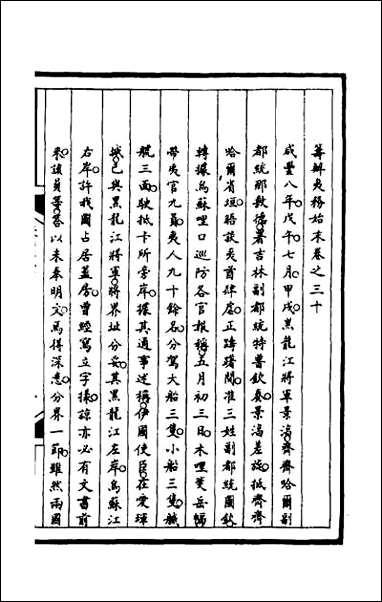 籌辦夷務始末卷之三十
咸豐八年戊午七月甲戌黑龍江將軍景淳齊齊哈爾副
都統那敦德署吉林副都統特普欽奏景淳差旋抵齊齊
哈爾省垣晤談夷酋肆虐正躊躇間准三姓副都統圖欽
轉據烏蘇哩口巡防各官報稱五月初三日木哩斐岳幅
帶夷官九員夷人九十餘名分駕大船三隻小船三隻舢
舨三面駛抵卡所旁岸據其通事述稱伊國使臣在愛琿
城已與黑龍江將軍將界址分妥其黑龍江左岸烏蘇江
右岸許我國占居蓋房曾經寫立字樣諒亦必有文書前
來該員等答以未奉明文焉得深悉分界一節雖然兩國